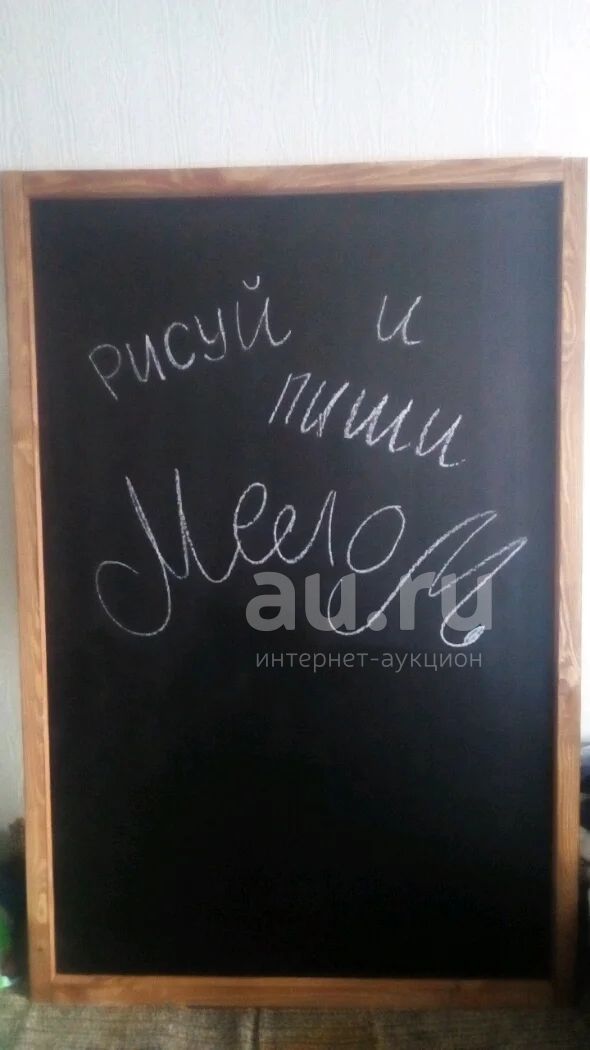 рисуй и
пиши
Мелом
au.ru
интернет-аукцион